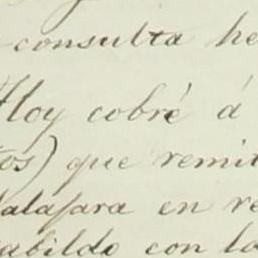 consulta he
Hoy cobré á
tos) que remit
alajara en re
abildo con la